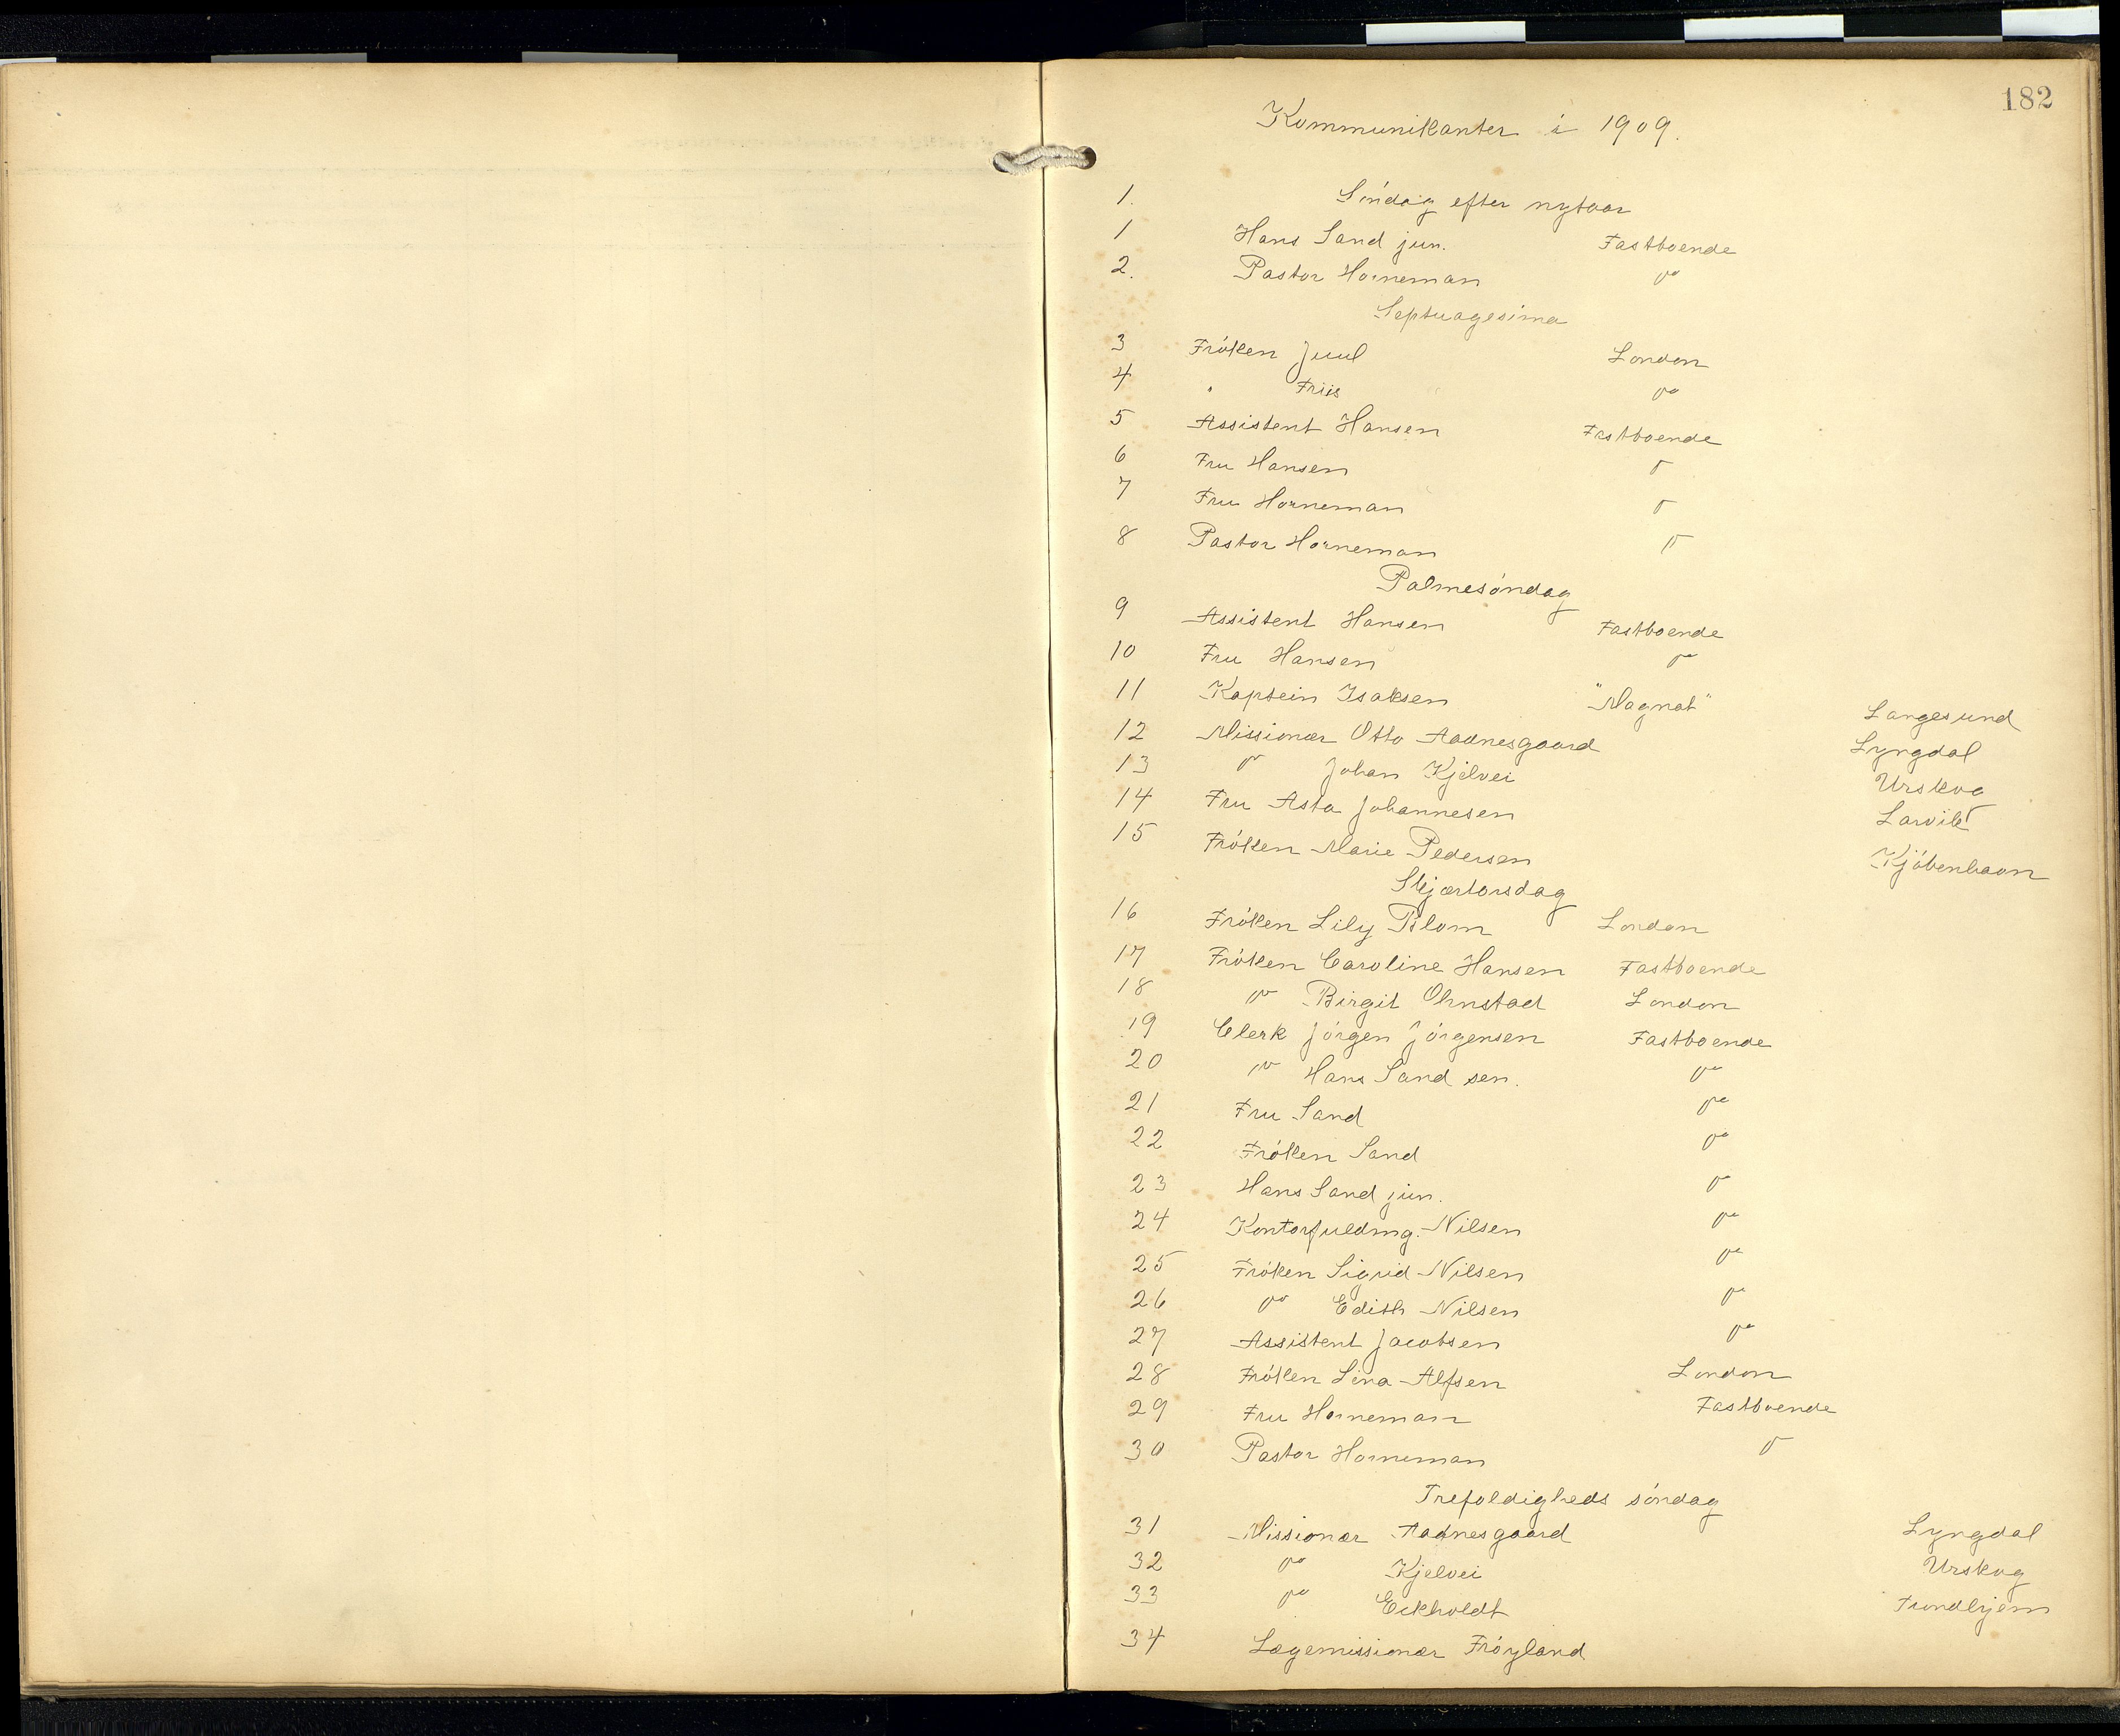 182
Kommunikanter i 1909.
1. Söndag efter nytaar
1 Hans Sand jun. Fastboende
2. Pastor Horneman "
Septuagesima
3 Fröken Juul London
4 " Friis "
5 Assistent Hansen Fastboende
6 Fru Hansen "
7 Fru Horneman "
8 Pastor Horneman "
Palmesöndag
9 Assistent Hansen Fastboende
10 Fru Hansen "
11 Kaptein Isaksen "Magnat" Langesund
12 Missionær Otto Aadnesgaard Lyngdal
13 " Johan Kjelvei Urskog
14 Fru Asta Johannesen Larvik
15 Fröken Marie Pedersen Kjöbenhavn
Skjærtorsdag
16 Fröken Lily Blom London
17 Fröken Caroline Hansen Fastboende
18 " Birgit Ohnstad London
19 Clerk Jörgen Jörgensen Fastboende
20 " Hans Sand sen. "
21 Fru Sand "
22 Fröken Sand "
23 Hans Sand jun. "
24 Kontorfuldmg. Nilsen "
25 Fröken Sigrid Nilsen "
26 " Edith Nilsen "
27 Assistent Jacobsen "
28 Fröken Lina Alfsen London
29 Fru Horneman Fastboende
30 Pastor Horneman "
Trefoldigheds söndag
31 Missionær Aadnesgaard Lyngdal
32 " Kjelvei Urskog
33 " Eckholdt Trondhjem
34 Lægemissionær Fröyland